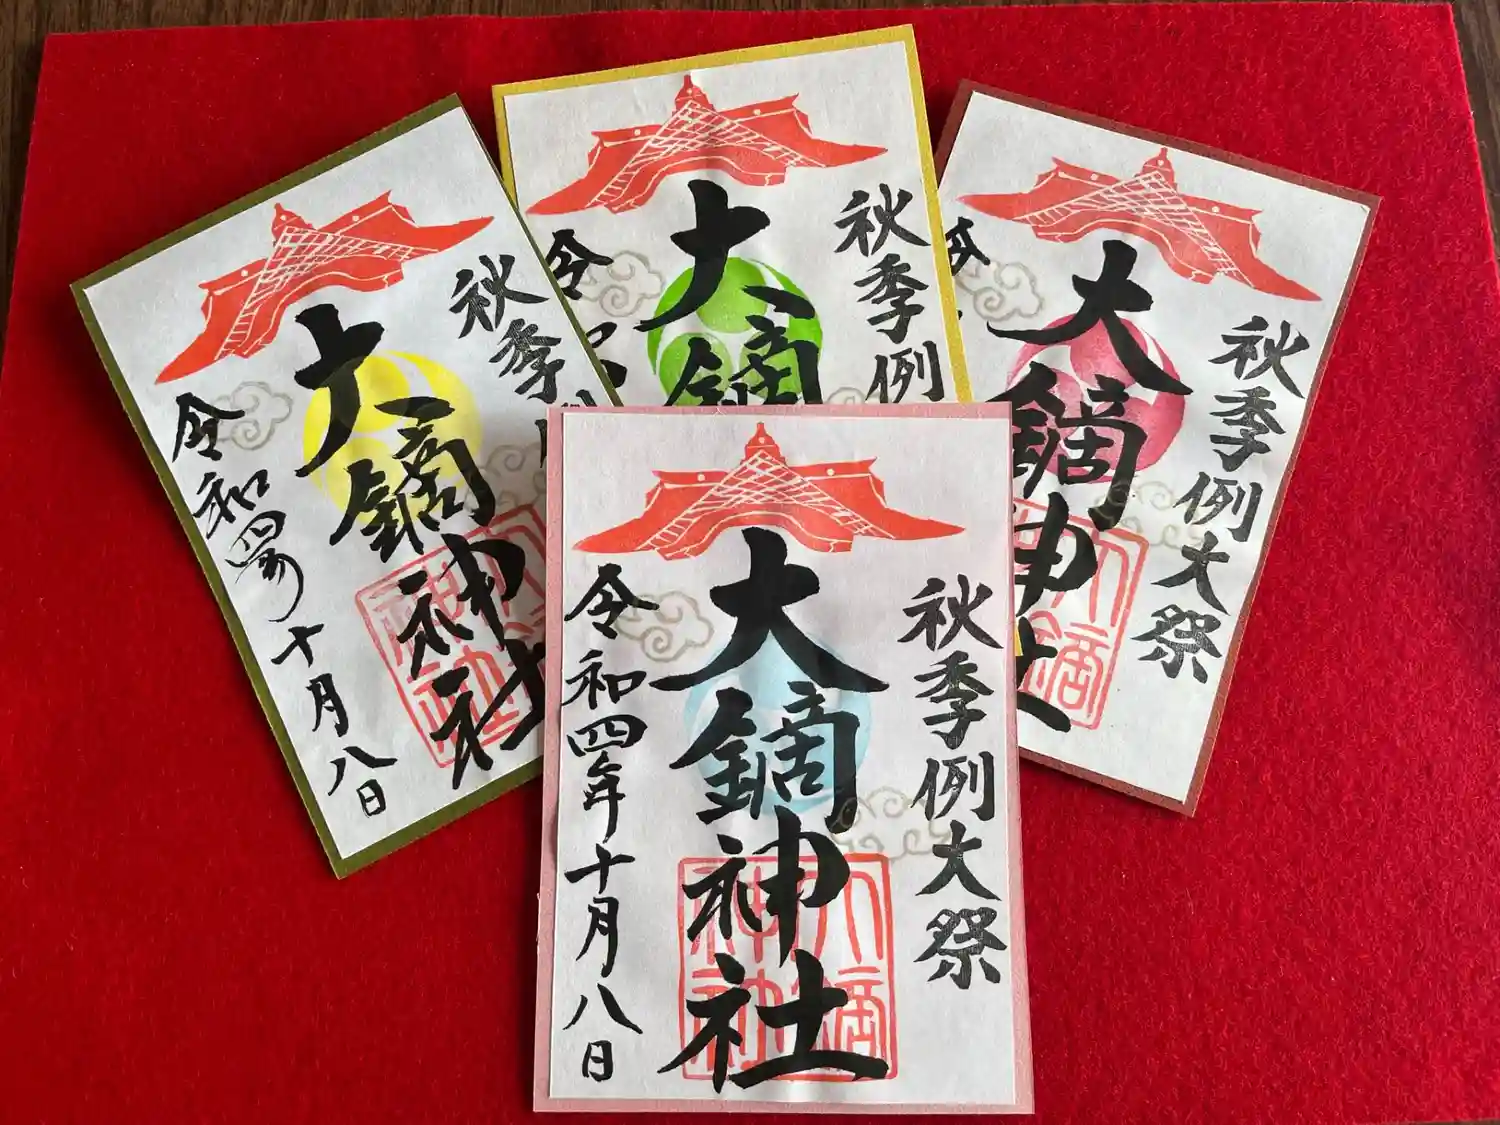 秋季例
大鏑神社
令和四年十月八日
秋季例
大鏑
令
秋季例大祭
大鏑神社
令
秋季例大祭
大鏑神社
令和四年十月八日
大鏑
神社